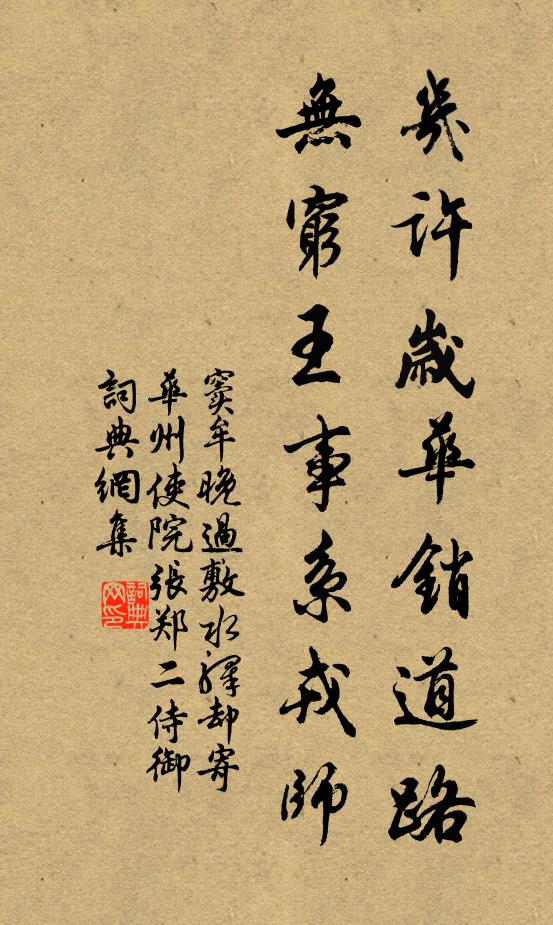 幾許歲華銷道路
無窮王事系戎師
竇牟晚過敷水驛却寄
華州使院張郑二侍御
詞典網集
詞典网印